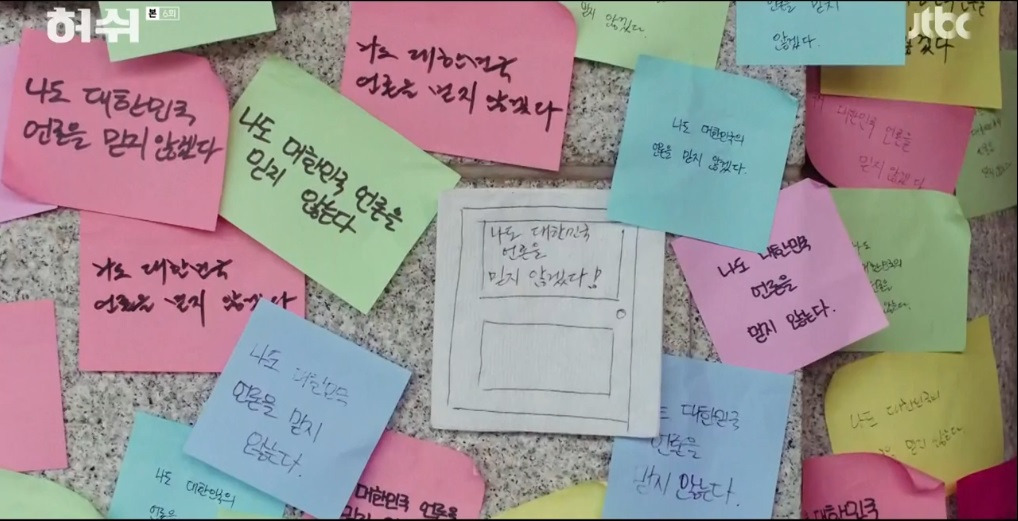 허쉬
본 6회
jtbc
않겠다.
믿지
않겠다.
겠다
나도 대한민국
언론을 믿지 않겠다
나도 대한민국
언론을 믿지 않겠다
나도 대한민국 언론을
믿지
않는다
나도 대한민국의
언론을 믿지 않겠다.
대한민국 언론을
믿지 않겠다
나도 대한민국
언론을
믿지 않겠다!
나도 대한민국
언론을
믿지 않는다.
나도
대한민국의
언론을
믿지 않는다.
나도 대한민국
언론을 믿지 않겠다
나도 대한민국
언론을 믿지
않는다.
대한민국
언론을
믿지 않는다.
나도 대한민국의
믿지 않는다
나도 대한민국의
언론을
대한민국 언론을
믿지 않겠다
대한민국